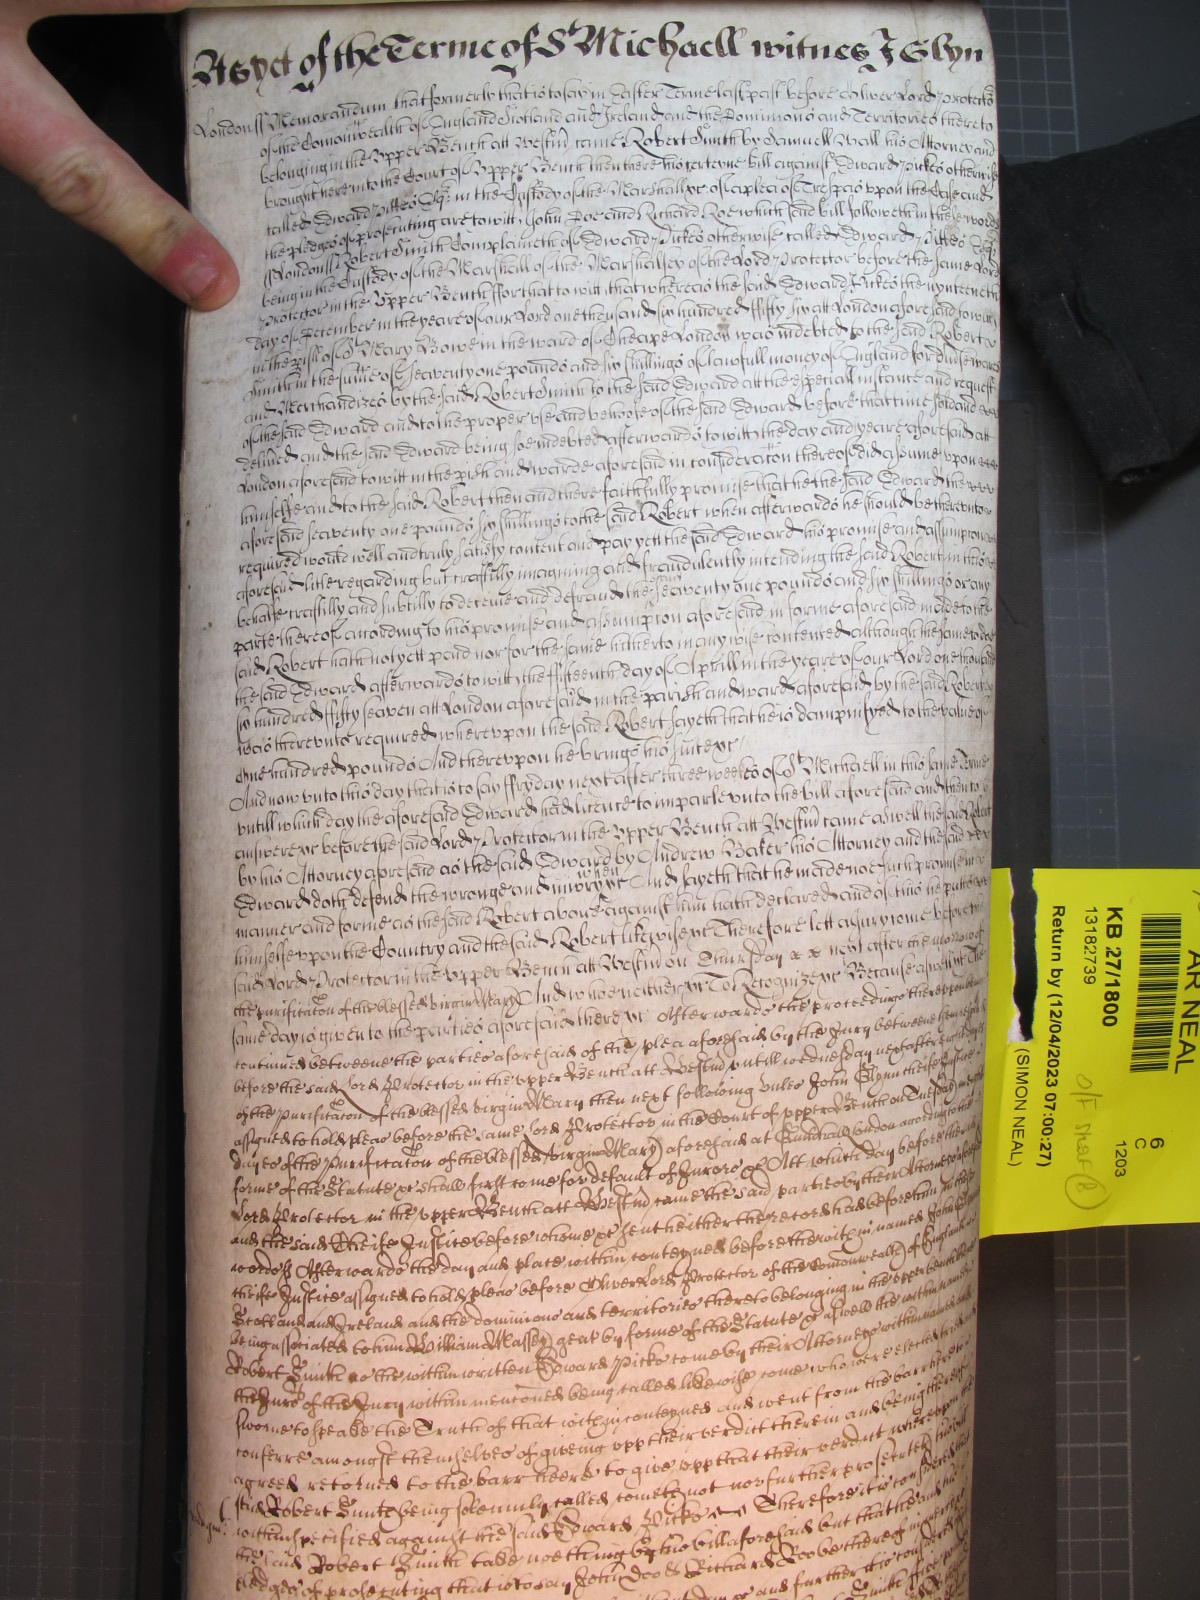 As yet of the Terme of St Michaell witnes J Glyn
London ss Memorandum that formerly that is to say in Easter Terme last past before Oliver Lord Protector
of the Comonwealth of England Scotland and Ireland and the Dominions and Territories thereto
belonging in the Upper Bench att Westm came Robert Smith by Samuell Wall his Attorney and
brought here into the Court of Upper Bench then there his certeyne bill against Edward Pickes otherwise
called Edward Pittes Esqr in the Custody of the Marshall &c of a plea of Trespas upon the Case and
the pledges of prosecuting are to witt John Doe and Richard Roe which said bill followeth in these words
ss London ss Robert Smith Complaineth of Edward Pickes otherwise called Edward Pittes Esqr
being in the Custody of the Marshall of the Marshallsey of the Lord Protector before the same Lord
Protector in the Upper Bench ffor that to witt that whereas the said Edward Pickes the nynteenth
day of December in the yeare of our Lord one thousand six hundred fifty six att London aforesaid to witt
in the pish of St Mary Bowe in the ward of Cheape London was indebted to the said Robert
Smith in the sume of seaventy one pounds and six shillings of lawfull money of England for diverse wares
and Merchandizes by the said Robert Smith to the said Edward att the especiall instance and request
of the said Edward and to the proper use and behoofe of the said Edward before that time sold and
delived and the said Edward being soe indebted afterwards to witt the day and yeare aforesaid att
London aforesaid to witt in the pish and warde aforesaid in consideracon thereof did assume upon
himselfe and to the said Robert then and there faithfully promise that he the said Edward the
aforesaid seaventy one pounds six shillings to the said Robert when afterwards he should be thereunto
required would well and truly satisfy content and pay yett the said Edward his promise and assumption
aforesaid litle regarding but craftily imagining and fraudulently intending the said Robert in this
behalfe craftily and subtilly to deceive and defraud the said seaventy one pounds and six shillings or any
parte thereof according to his promise and assumption aforesaid in forme aforesaid made to the
said Robert hath not yett paid nor for the same hitherto in any wise contented although the same to doe
the said Edward afterwards to witt the fifteenth day of Aprill in the yeare of our Lord one thousand
six hundred ffifty seaven att London aforesaid in the parish and ward aforesaid by the said Robert
was thereunto required whereupon the said Robert sayeth that he is dampnifyed to the value of
One hundred pounds And thereupon he brings his suite &c
And now unto this day that is to say ffryday next after three weekes of St Michaell in this same Terme
untill which day the aforesaid Edward had licence to imparle unto the bill aforesaid and then to
answere &c before the said Lord Protector in the Upper Bench att Westm came aswell the said Robert
by his Attorney aforesaid as the said Edward by Andrew Baker his Attorney and the said
Edward doth defend the wronge and iniury when &c And sayeth that he made noe such promise in
manner and forme as the said Robert above against him hath declared and of this he putteth
himselfe uppon the Country and the said Robert likewise &c Therefore lett a Jury come before the
said Lord Protector in the Upper Bench att Westm on Thursday next after the morrow of
the purificacon of the blessed virgin Mary And who neither &c To Recognize &c Because aswell &c The
same day is given to the parties aforesaid there &c Afterwards the proceedings thereupon
continued betweene the parties aforesaid of the plea aforesaid by the Jury betweene them
before the said Lord Protector in the upper Bench att Westm untill wednesday next after
of the purificacon of the blessed virgin Mary then next following unles John Glynn cheife Justice
assigned to hold pleas before the same Lord Protector in the Court of upper Bench on Tuesday
dayes of the purificacon of the blessed virgin Mary aforesaid at Guildhall London according to the
forme of the Statute &c shall first come for default of Jurors &c Att which day before the
Lord Protector in the upper Bench att Westm came the said parties by their Attorneys aforesaid
and the said Cheife Justice before whome &c sent hither the record had before him in these
words ss Afterwards the day and place within conteyned before the within named John Glynn
cheife Justice assigned to hold pleas before Oliver Lord Protector of the Comonwealth of England
Scotland and Ireland and the dominions and territories thereto belonging in the upper bench
being associated to him William Massey gent by forme of the Statute &c aswell the within named
Robert Smith as the within written Edward Pickes come by their Attorneys within named
the Juro of the Jury within menconed being called likewise come who were elected
sworne to speake the Truth of that within conteyned and went from the barr there to
conferre amongst themselves of giveing upp their verdict therein and being thereof
agreed returned to the barr heere to give upp that their verdict whereupon
said Robert Smith being solemnly called cometh not nor further prosecuted his bill
within specified against the said Edward Pickes Therefore it is considered that
the said Robert Smith take nothing by his bill aforesaid but that he and his
pledges of prosecuting that is to say John Doo & Richard Roo be thereof in mercy
day &c and further it is considered
AR NEAL
KB 27/1800
13182739
Return by (12/04/2023 07:00:27)
(SIMON NEAL)
6
C
1203